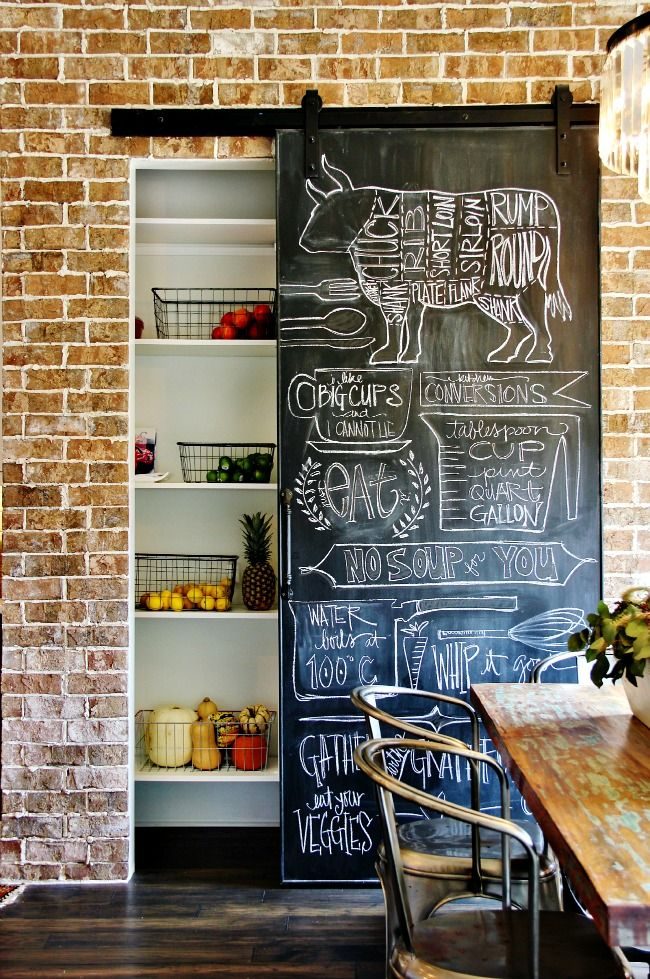 CHUCK RIB SHORT LOIN SIRLOIN RUMP
ROUND
SHANK PLATE FLANK SHANK
i like
BIG CUPS
and
I CANNOT LIE
kitchen
CONVERSIONS
tablespoon
CUP
pint
QUART
GALLON
eat
NO SOUP for YOU
WATER
boils at
100°C
WHIP it
GATHER
with
eat your
VEGGIES